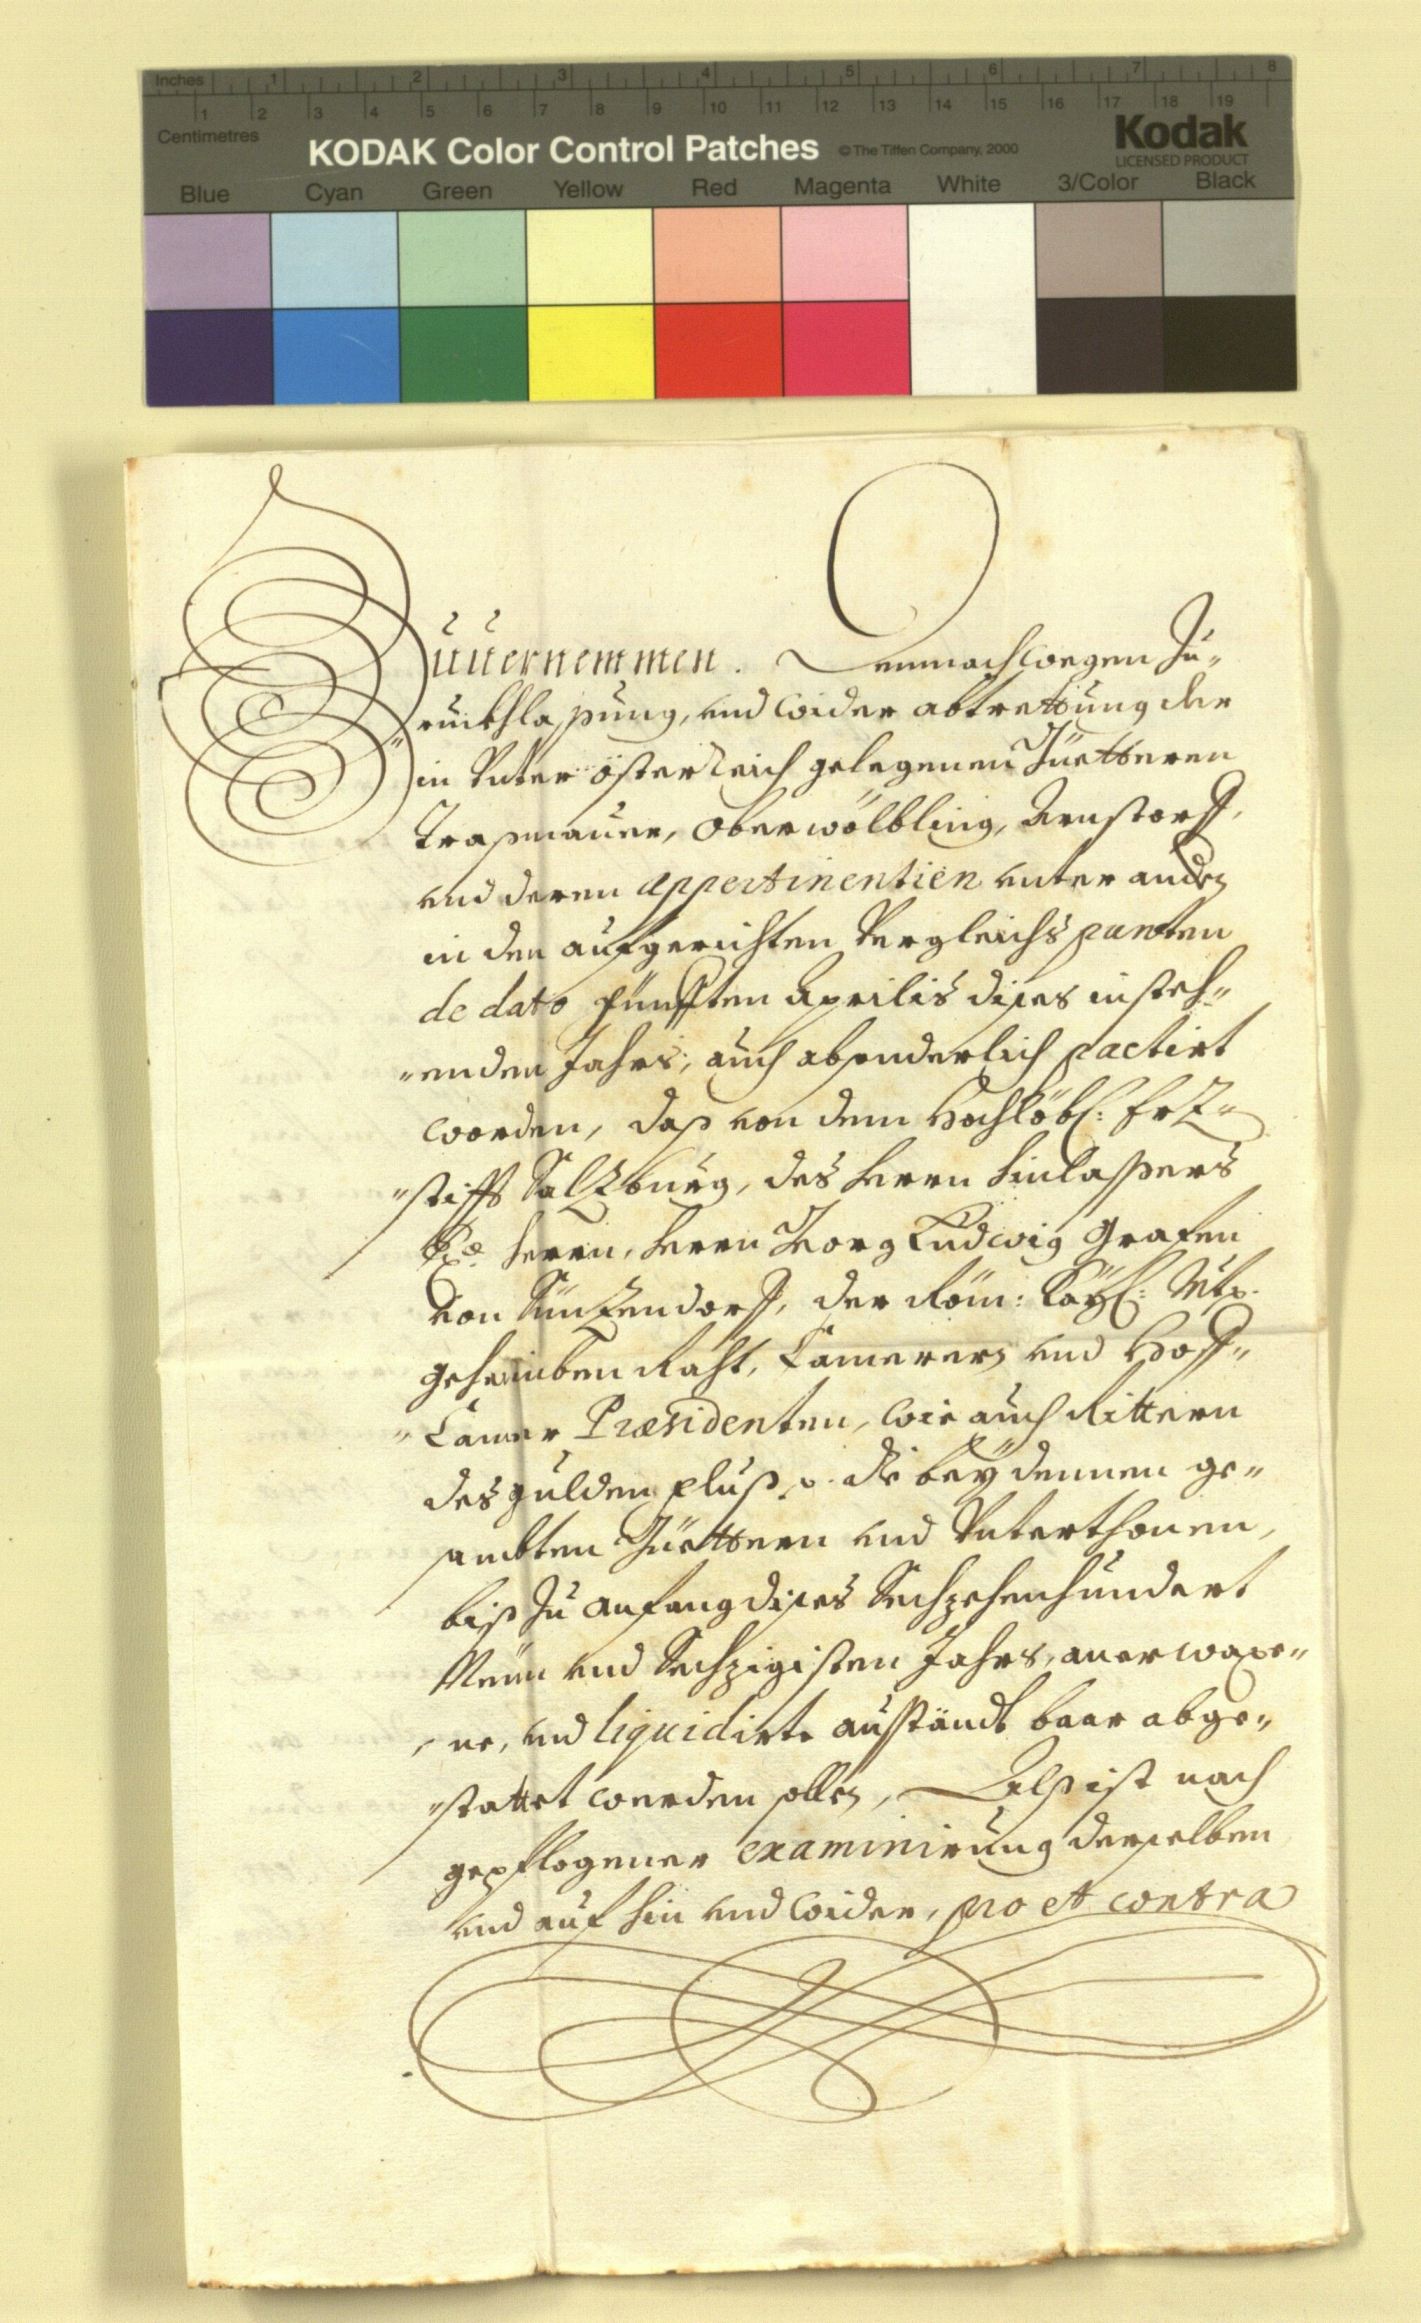 Inches 1 2 3 4 5 6 7 8
1 2 3 4 5 6 7 8 9 10 11 12 13 14 15 16 17 18 19
Centimetres
KODAK Color Control Patches © The Tiffen Company, 2000 Kodak
LICENSED PRODUCT
Blue Cyan Green Yellow Red Magenta White 3/Color Black
Zuuernemmen. Demnach wegen Zu-
ruckhlassung, vnd wider abtrettung der
in Vnter österreich gelegenen Güetteren
Traßmauer, Oberwölbling, Arnstorff,
vnd deren Appertinentien vnter andern
in den aufgerichten Vergleichs puncten
de dato fünfften Aprilis dises insteh-
enden Jahrs, auch absonderlich pactirt
worden, daß von dem Hochlöbl: Erz-
stifft Salzburg, des herrn hinlaßers
Exc. herrn, herrn Georg Ludwig Grafen
von Sinzendorff, der Röm: Kayl: Mtt.
geheimben Raht, Camerern vnd Hoff-
Camer Præsidenten, wie auch Rittern
des gulden pluß, die bey dennen ge-
sambten Güettern vnd Vnterthonen,
biß Zu anfang dises Sechzehenhundert
Neun vnd Sechzigisten Jahrs, anerwaxe-
ne, vnd liquidirte außständt baar abge-
stattet werden sollen, Alß ist nach
gepflogener examinirung derselben
vnd auf hin vnd wider, pro et contra